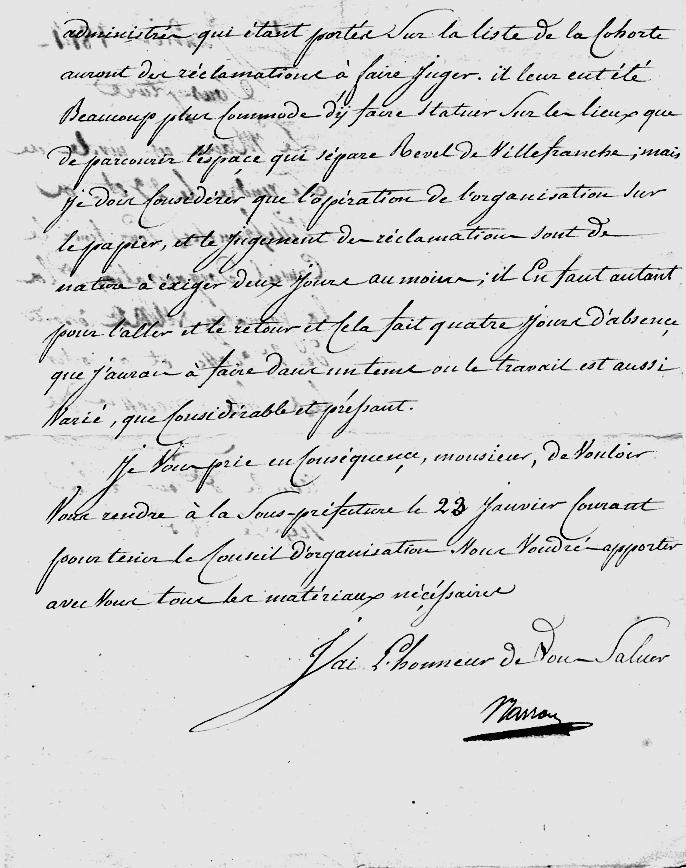 administrés qui étant portés Sur la liste de la Cohorte
auront des réclamations à faire Juger. il leur eut été
Beaucoup plus Commode d'y faire Statuer Sur les lieux que
de parcourir l'espace qui sépare Revel de Villefranche; mais
je dois Considérer que l'opération de l'organisation sur
le papier, et le Jugement des réclamations sont de
nature à exiger deux Jours au moins; il En faut autant
pour l'aller et le retour et Cela fait quatre Jours d'absence
que j'aurais à faire dans un tems ou le travail est aussi
Varié, que Considérable et préssant.
Je Vous prie en Conséquence, monsieur, de Vouloir
Vous rendre à la Sous-préfecture le 23 Janvier Courant
pour tenir le Conseil d'organisation. Vous Voudrés apporter
avec Vous tous les matériaux nécéssaires
J'ai l'honneur de Vous Saluer